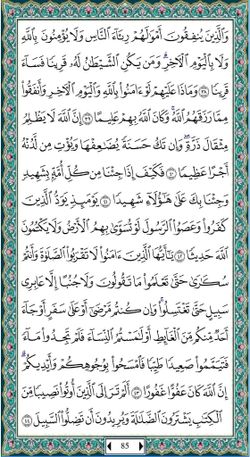 وَٱلَّذِينَ يُنفِقُونَ أَمْوَٰلَهُمْ رِئَآءَ ٱلنَّاسِ وَلَا يُؤْمِنُونَ بِٱللَّهِ
وَلَا بِٱلْيَوْمِ ٱلْـَٔاخِرِ ۗ وَمَن يَكُنِ ٱلشَّيْطَٰنُ لَهُۥ قَرِينًا فَسَآءَ
قَرِينًا ٣٨ وَمَاذَا عَلَيْهِمْ لَوْ ءَامَنُوا۟ بِٱللَّهِ وَٱلْيَوْمِ ٱلْـَٔاخِرِ وَأَنفَقُوا۟
مِمَّا رَزَقَهُمُ ٱللَّهُ ۚ وَكَانَ ٱللَّهُ بِهِمْ عَلِيمًا ٣٩ إِنَّ ٱللَّهَ لَا يَظْلِمُ
مِثْقَالَ ذَرَّةٍ ۖ وَإِن تَكُ حَسَنَةً يُضَٰعِفْهَا وَيُؤْتِ مِن لَّدُنْهُ
أَجْرًا عَظِيمًا ٤٠ فَكَيْفَ إِذَا جِئْنَا مِن كُلِّ أُمَّةٍۭ بِشَهِيدٍ
وَجِئْنَا بِكَ عَلَىٰ هَٰٓؤُلَآءِ شَهِيدًا ٤١ يَوْمَئِذٍ يَوَدُّ ٱلَّذِينَ
كَفَرُوا۟ وَعَصَوُا۟ ٱلرَّسُولَ لَوْ تُسَوَّىٰ بِهِمُ ٱلْأَرْضُ وَلَا يَكْتُمُونَ
ٱللَّهَ حَدِيثًا ٤٢ يَٰٓأَيُّهَا ٱلَّذِينَ ءَامَنُوا۟ لَا تَقْرَبُوا۟ ٱلصَّلَوٰةَ وَأَنتُمْ
سُكَٰرَىٰ حَتَّىٰ تَعْلَمُوا۟ مَا تَقُولُونَ وَلَا جُنُبًا إِلَّا عَابِرِى
سَبِيلٍ حَتَّىٰ تَغْتَسِلُوا۟ ۚ وَإِن كُنتُم مَّرْضَىٰٓ أَوْ عَلَىٰ سَفَرٍ أَوْ جَآءَ
أَحَدٌ مِّنكُم مِّنَ ٱلْغَآئِطِ أَوْ لَٰمَسْتُمُ ٱلنِّسَآءَ فَلَمْ تَجِدُوا۟ مَآءً
فَتَيَمَّمُوا۟ صَعِيدًا طَيِّبًا فَٱمْسَحُوا۟ بِوُجُوهِكُمْ وَأَيْدِيكُمْ ۗ
إِنَّ ٱللَّهَ كَانَ عَفُوًّا غَفُورًا ٤٣ أَلَمْ تَرَ إِلَى ٱلَّذِينَ أُوتُوا۟ نَصِيبًا مِّنَ
ٱلْكِتَٰبِ يَشْتَرُونَ ٱلضَّلَٰلَةَ وَيُرِيدُونَ أَن تَضِلُّوا۟ ٱلسَّبِيلَ ٤٤
85